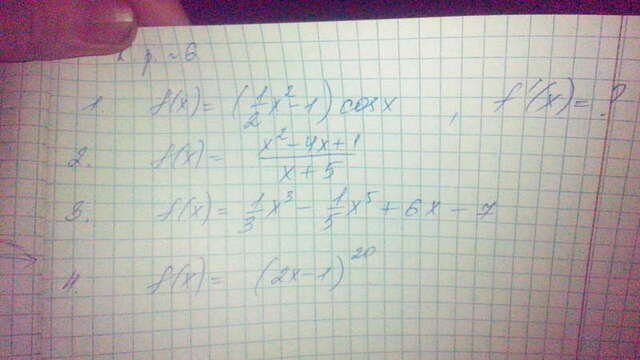 к. р. №6
1. f(x) = (1/2 x² - 1) cos x, f'(x) = ?
2. f(x) = (x² - 4x + 1)/(x + 5)
3. f(x) = 1/3 x³ - 1/5 x⁵ + 6x - 7
4. f(x) = (2x - 1)²⁰